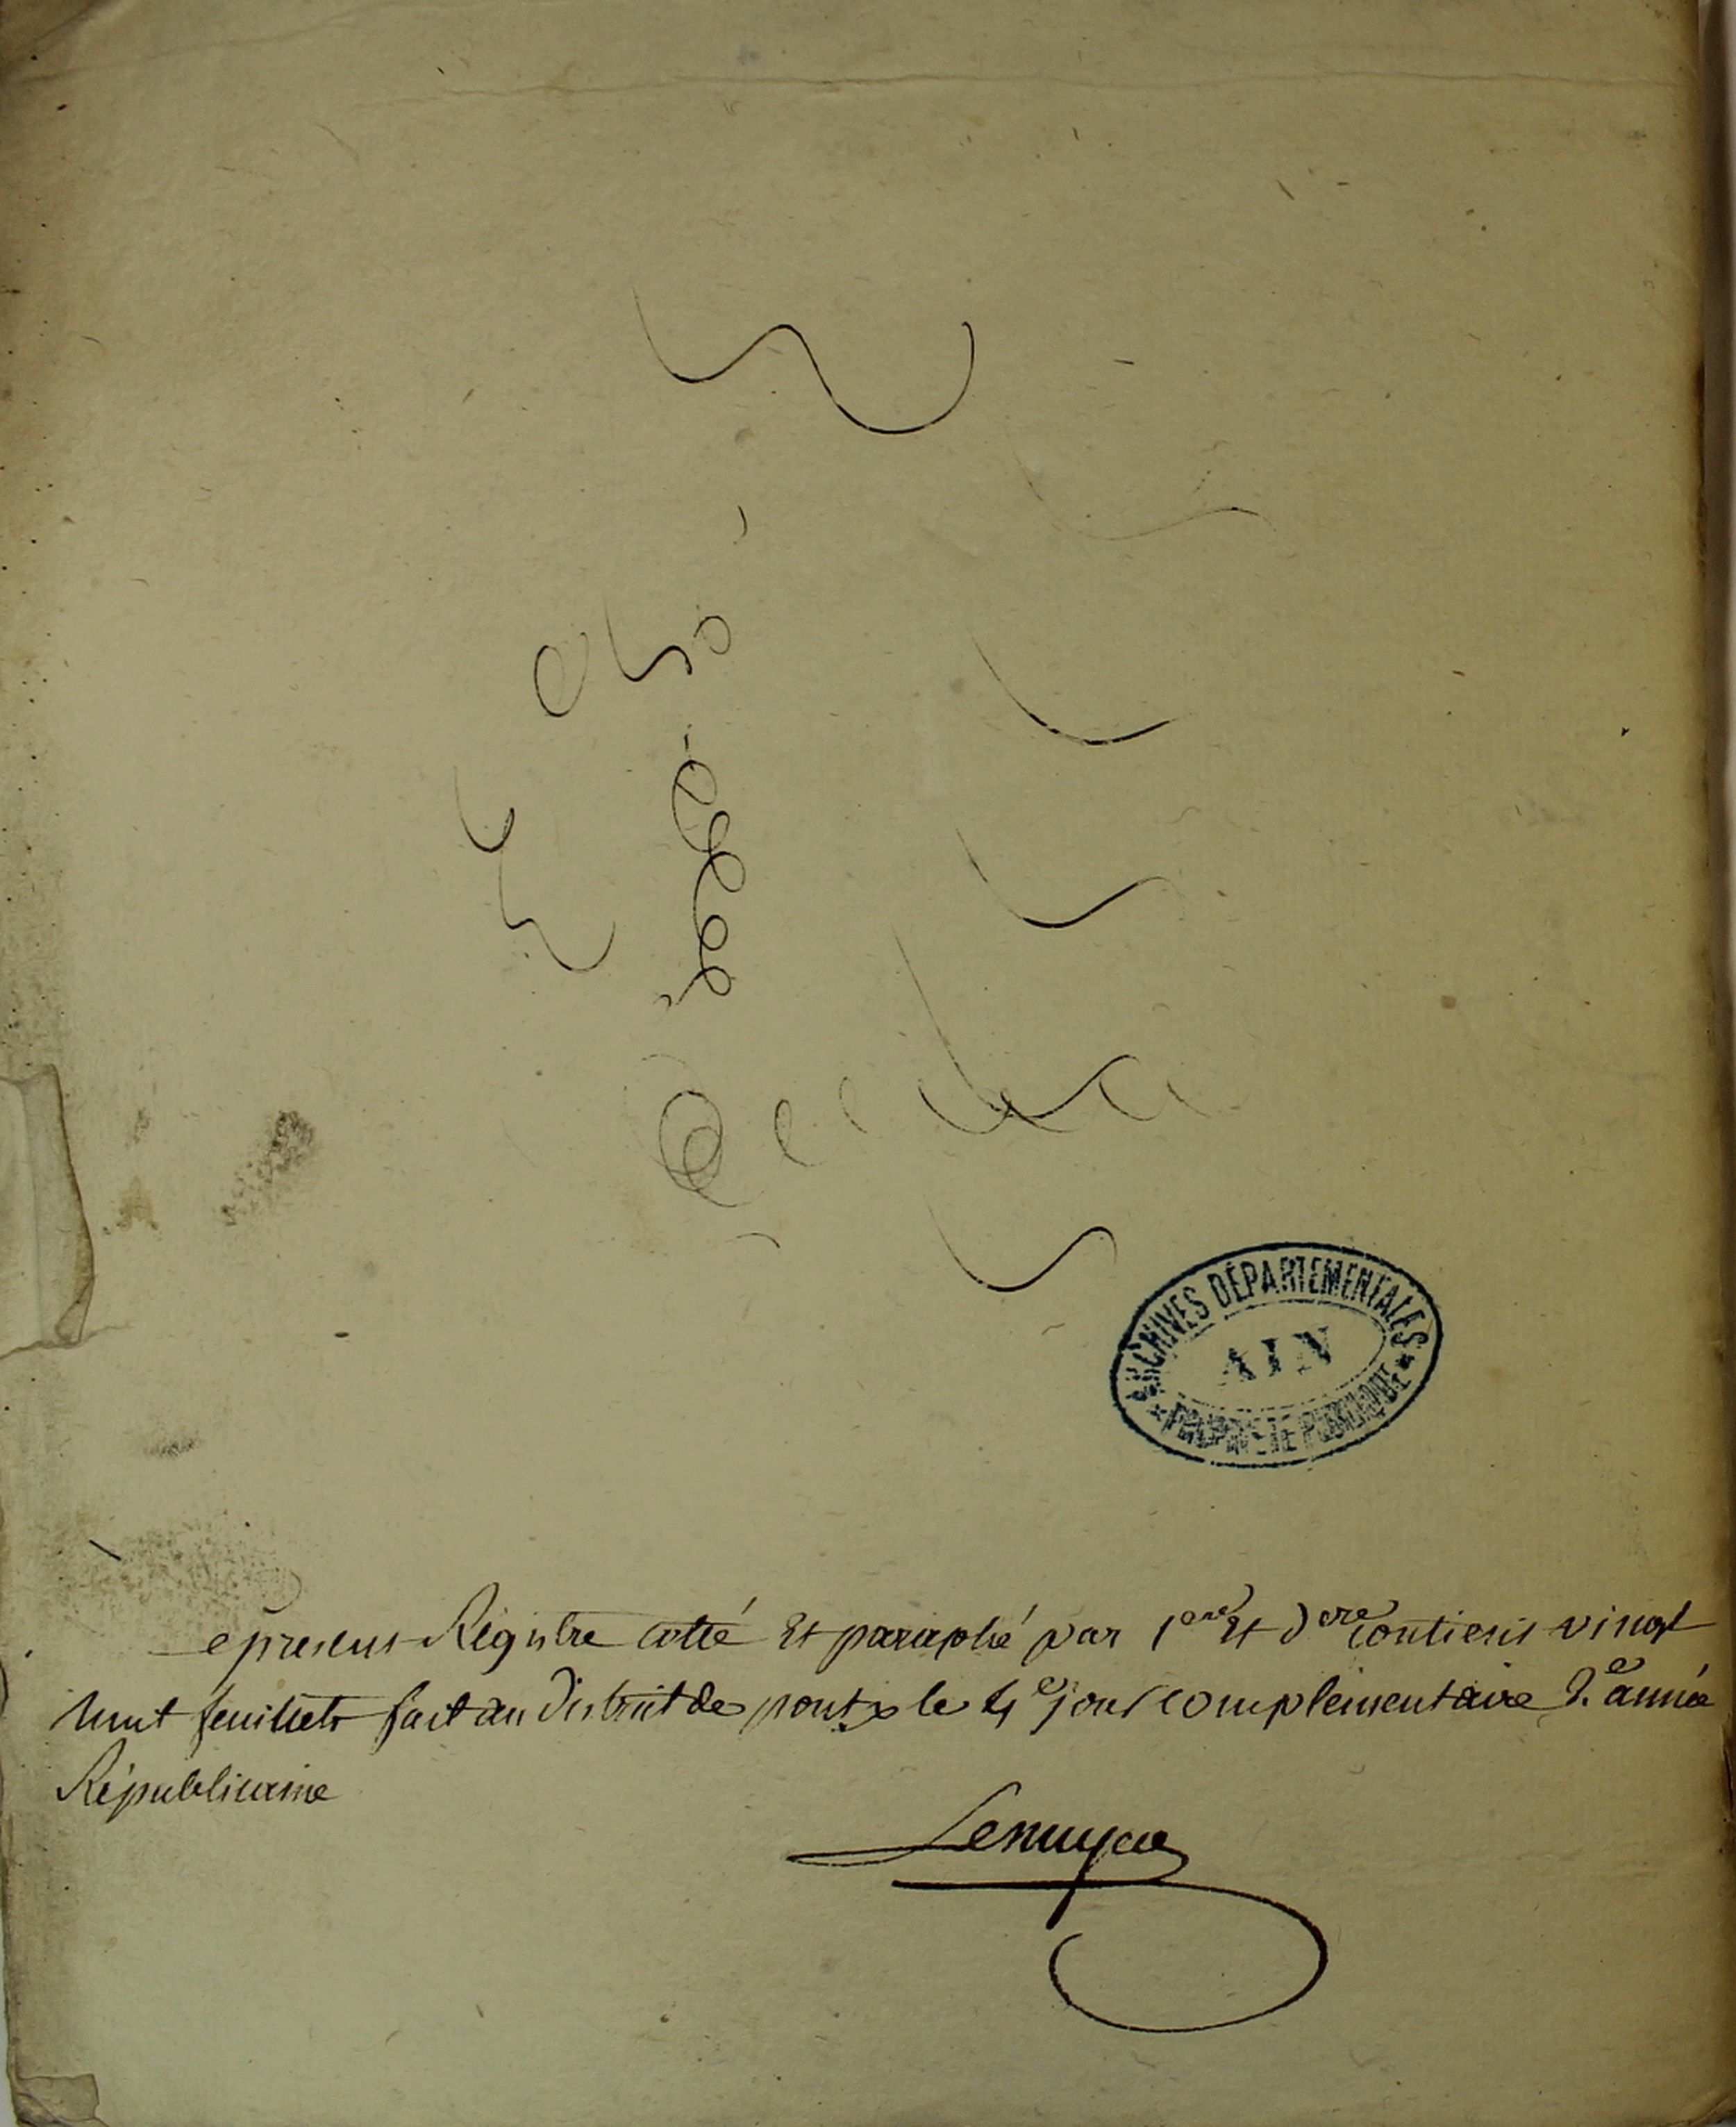 ARCHIVES DÉPARTEMENTALES
AIN
PROPRIÉTÉ PUBLIQUE
epresent Régistre cotté Et paraphé par 1ere Et dere contient vingt
huit feuillets fait au district de pontx le 4e jour complémentaire 2.e année
Républicaine